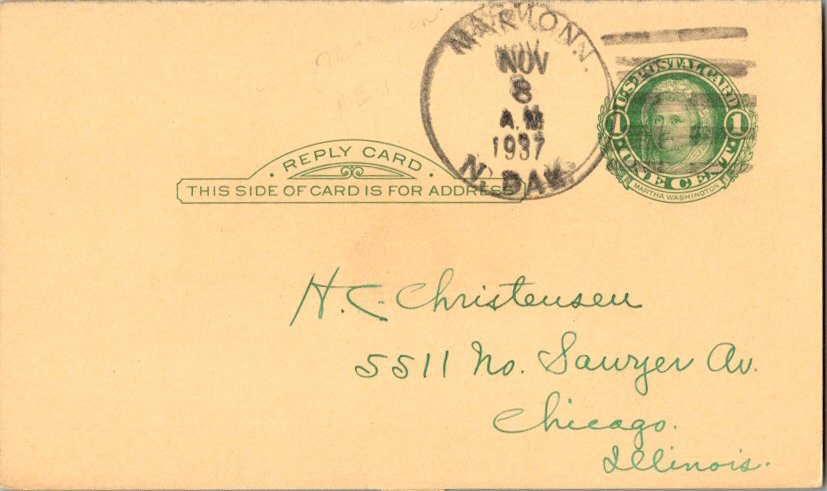 MARMON.
NOV
8
A.M.
1937
N. DAK.
U.S. POSTAL CARD
1 1
ONE CENT
MARTHA WASHINGTON
REPLY CARD
THIS SIDE OF CARD IS FOR ADDRESS
H. C. Christensen
5511 No. Sawyer Av.
Chicago.
Illinois.